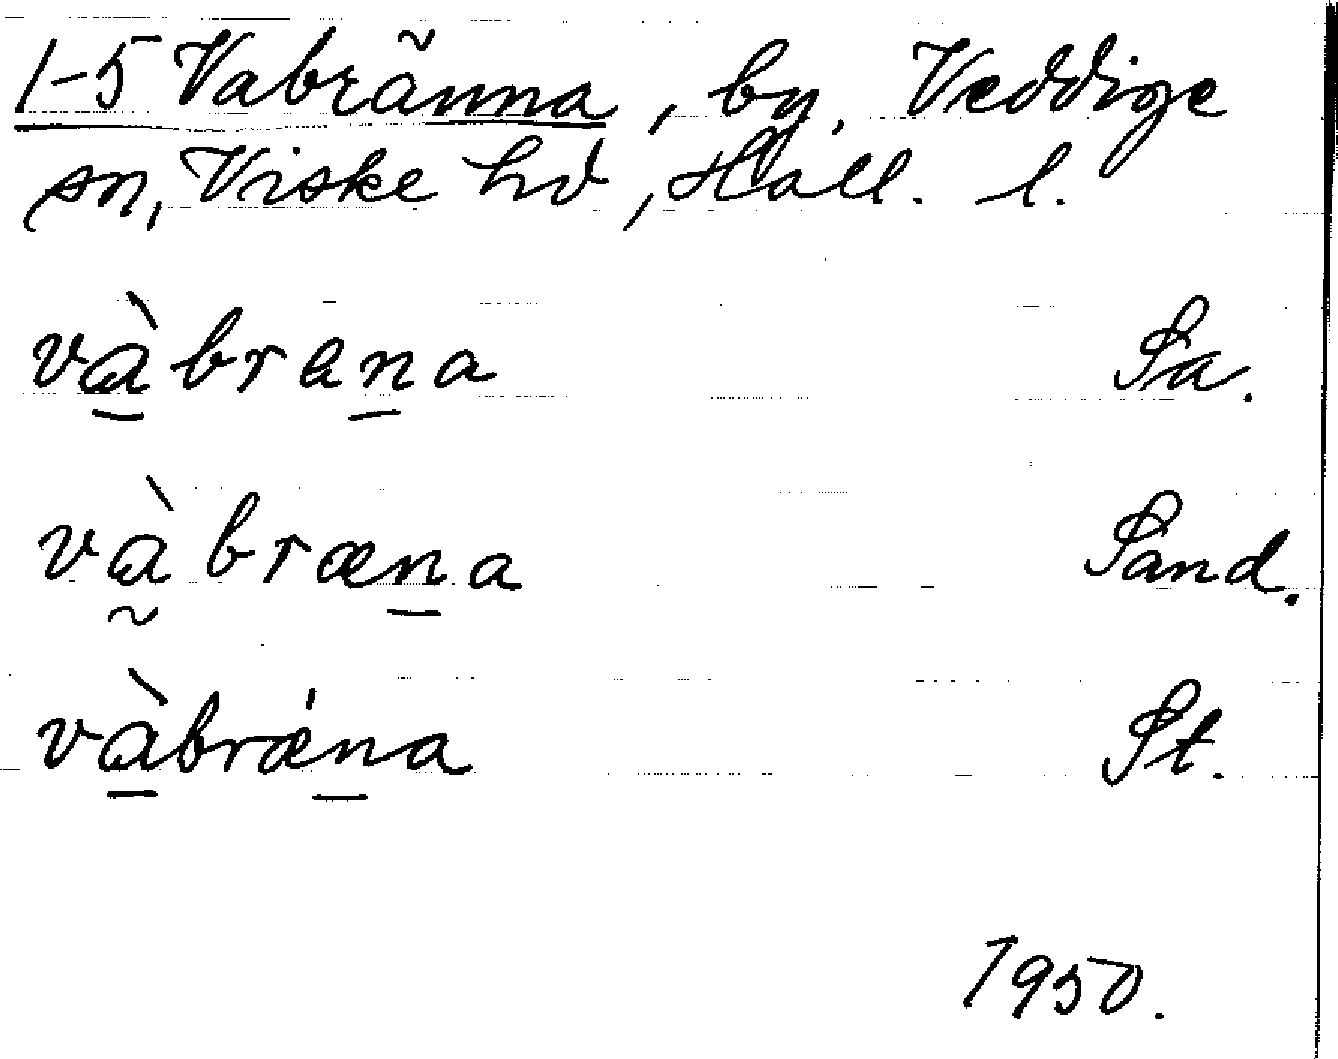 1-5 Vabränna, by, Veddige
sn, Viske hd, Hall. l.
và̱brɛṉa Sa.
và̰bræṉa Sand.
và̱brǽṉa St.
1950.